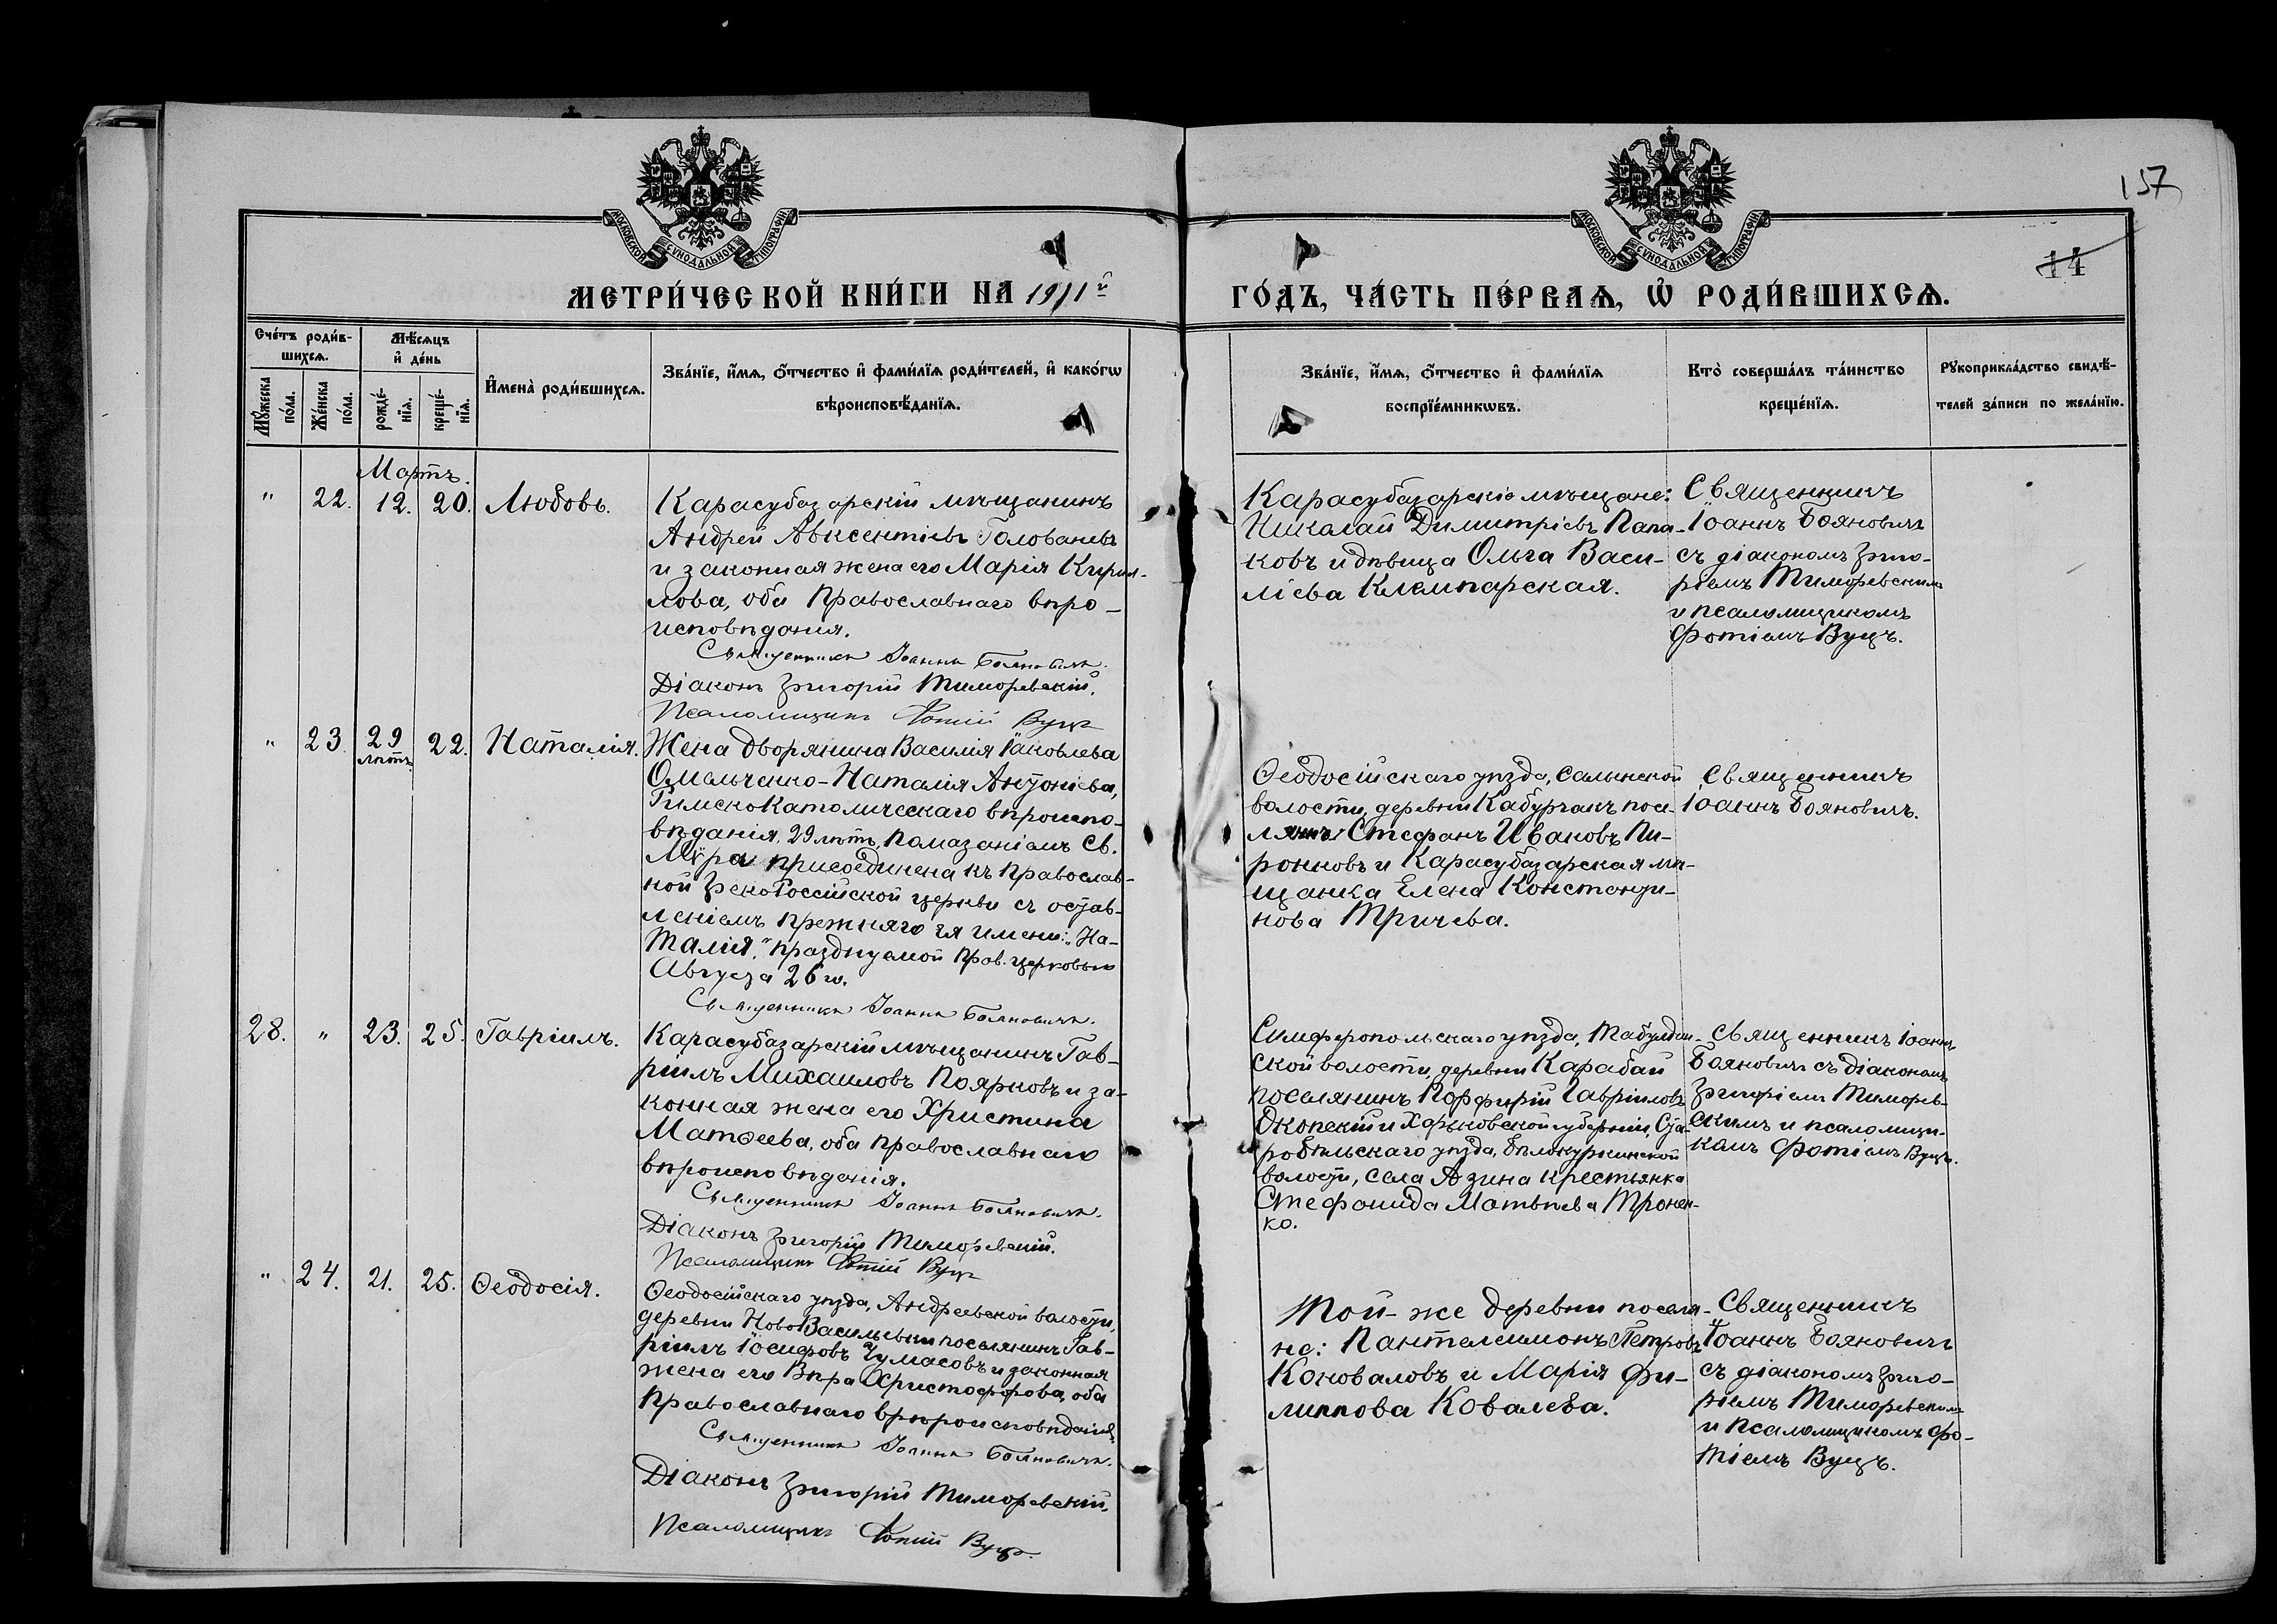 157
14
МОСКОВСКОЙ СѴНОДАЛЬНОЙ ТИПОГРАФІИ
МОСКОВСКОЙ СѴНОДАЛЬНОЙ ТИПОГРАФІИ
МЕТРИ́ЧЕСКОЙ КНИ́ГИ НА 1911й
ГО́ДЪ, ЧА́СТЬ ПЕ́РВАѦ, Ѡ҆ РОДИ́ВШИХСѦ.
Сче́тъ роди́в-
шихсѧ.
Мꙋ́жеска по́ла.
Же́нска по́ла.
Мѣ́сѧцъ
и҆ де́нь
рожде́-
нїѧ.
креще́-
нїѧ.
И҆мена̀ роди́вшихсѧ.
Зва́нїе, и҆́мѧ, ѻ҆́тчество и҆ фами́лїѧ роди́телей, и҆ како́гѡ
вѣроисповѣ́данїѧ.
Зва́нїе, и҆́мѧ, ѻ҆́тчество и҆ фами́лїѧ
воспрїе́мникѡвъ.
Кто̀ соверша́лъ та́инство
креще́нїѧ.
Рꙋкоприкла́дство свидѣ́-
телей за́писи по жела́нїю.
Мартъ.
" 22. 12. 20. Любовь.
Карасубазарскій мѣщанинъ
Андрей Авксентіевъ Голованевъ
и законная жена его Марія Кирил-
лова, оба Православнаго вѣро-
исповѣданія.
Священникъ Іоаннъ Бояновичъ.
Діаконъ Григорій Тиморевскій.
Псаломщикъ Фотій Вуцъ
Карасубазарскіе мѣщане:
Николай Димитріевъ Папа-
ковъ и дѣвица Ольга Васи-
ліева Клемпарская.
Священникъ
Іоаннъ Бояновичъ
съ діакономъ Григо-
ріемъ Тиморевскимъ
и псаломщикомъ
Фотіемъ Вуцъ.
" 23. 29 лѣтъ. 22. Наталія.
Жена дворянина Василія Іаковлева
Омельченко-Наталія Антоніева,
Римско Католическаго вѣроиспо-
вѣданія, 29 лѣтъ, Помазаніемъ Св.
Мѵра присоединена къ Православ-
ной Греко Россійской церкви съ остав-
леніемъ прежняго ея имени: „На-
талія," празднуемой Прав. церковью
Августа 26го.
Священникъ Іоаннъ Бояновичъ.
Ѳеодосійскаго уѣзда, Салынской
волости, деревни Кабурчакъ посе-
лянинъ Стефанъ Ивановъ Пи-
ронковъ и Карасубазарская мѣ-
щанка Елена Константи-
нова Тричева.
Священникъ
Іоаннъ Бояновичъ.
28. " 23. 25. Гавріилъ.
Карасубазарскій мѣщанинъ Гав-
ріилъ Михаиловъ Поярковъ и за-
конная жена его Христина
Матѳеева, оба православнаго
вѣроисповѣданія.
Священникъ Іоаннъ Бояновичъ.
Діаконъ Григорій Тиморевскій.
Псаломщикъ Фотій Вуцъ
Симферопольскаго уѣзда, Табулдин-
ской волости, деревни Карабай
поселянинъ Порфирій Гавріиловъ
и Харьковской губерніи, Ста-
робѣльскаго уѣзда, Бѣлокуркинской
волости, села Азина крестьянка
Стефанида Матвѣева Тронен-
ко.
Священникъ Іоаннъ
Бояновичъ съ діакономъ
Григоріемъ Тиморев-
скимъ и псаломщи-
комъ Фотіемъ Вуцъ.
" 24. 21. 25. Ѳеодосія.
Ѳеодосійскаго уѣзда, Андреевской волости,
деревни Ново Васильевки поселянинъ Гав-
ріилъ Іосифовъ Чумасовъ и законная
жена его Вѣра Христофорова, оба
Православнаго вѣроисповѣданія.
Священникъ Іоаннъ Бояновичъ.
Діаконъ Григорій Тиморевскій,
Псаломщикъ Фотій Вуцъ.
Той-же деревни поселя-
не: Пантелеимонъ Петровъ
Коноваловъ и Марія Фи-
липпова Ковалева.
Священникъ
Іоаннъ Бояновичъ
съ діакономъ Григо-
ріемъ Тиморевскимъ
и псаломщикомъ Фо-
тіемъ Вуцъ.